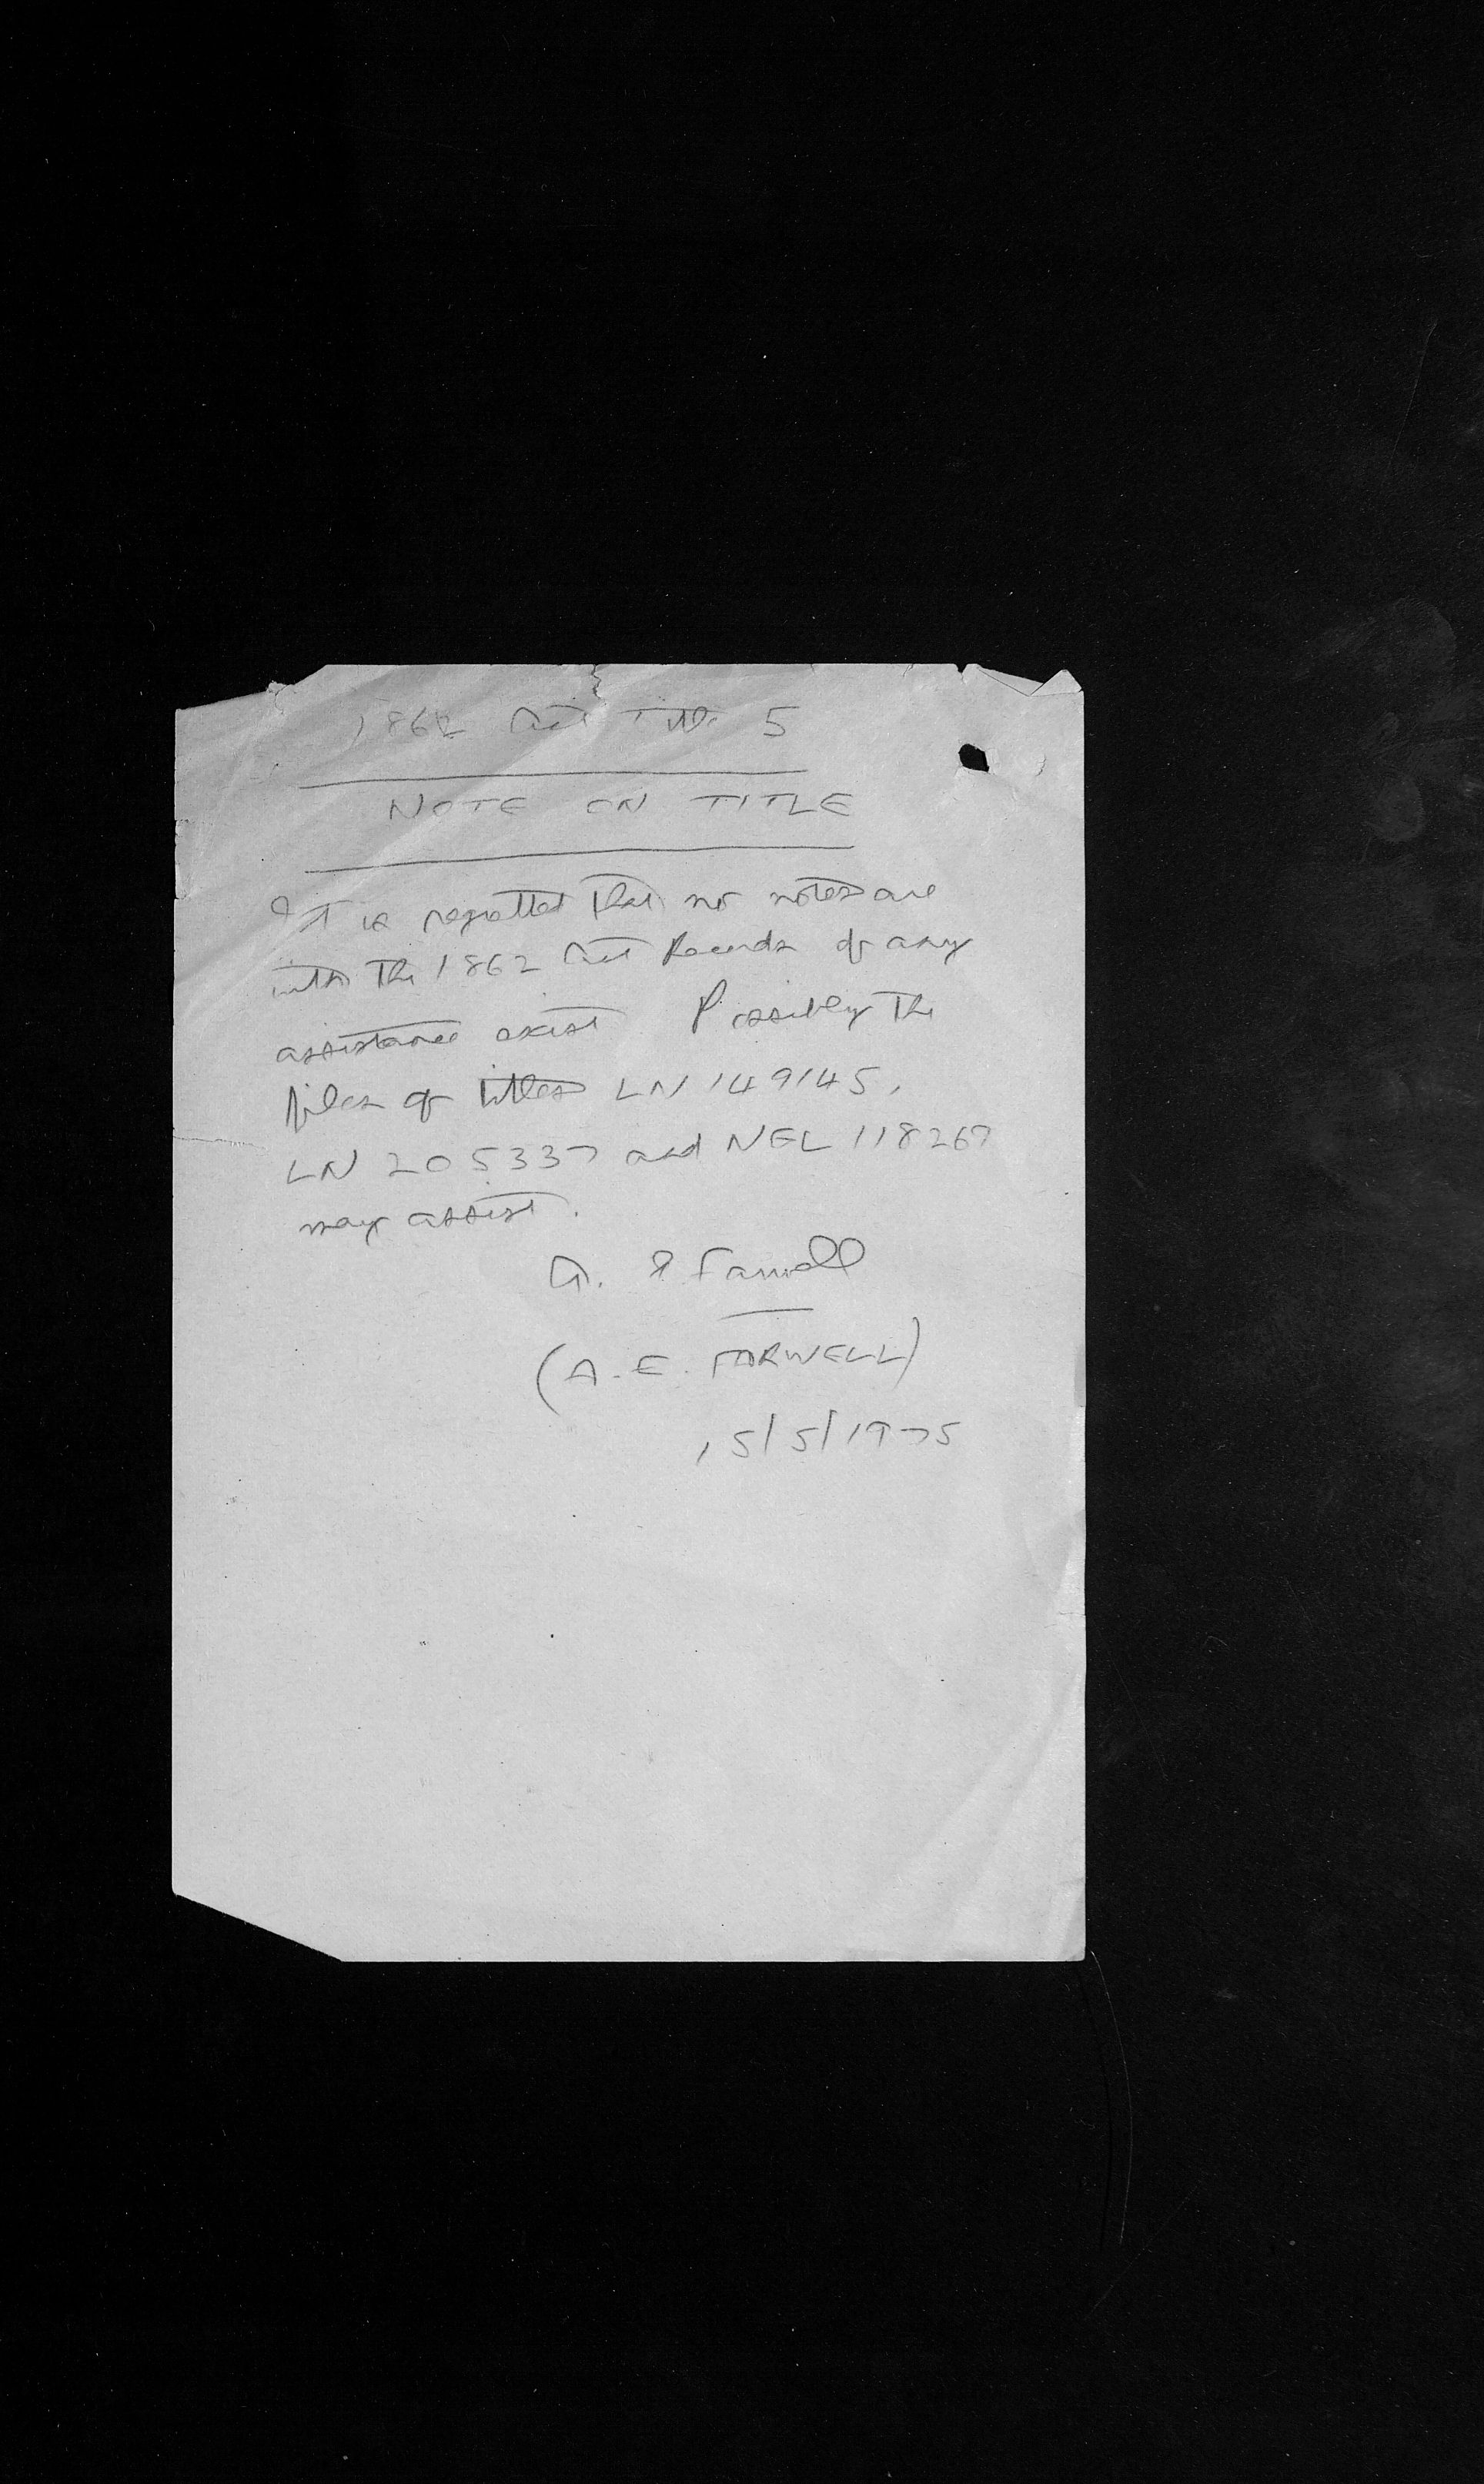 1862 Act Title 5
NOTE ON TITLE
It is regretted that no notes are
with the 1862 Act Records of any
assistance exist Possibly the
files of titles LN 149145,
LN 205337 and NGL 118267
may assist.
A. E Farwell
(A.E. FARWELL)
15/5/1975